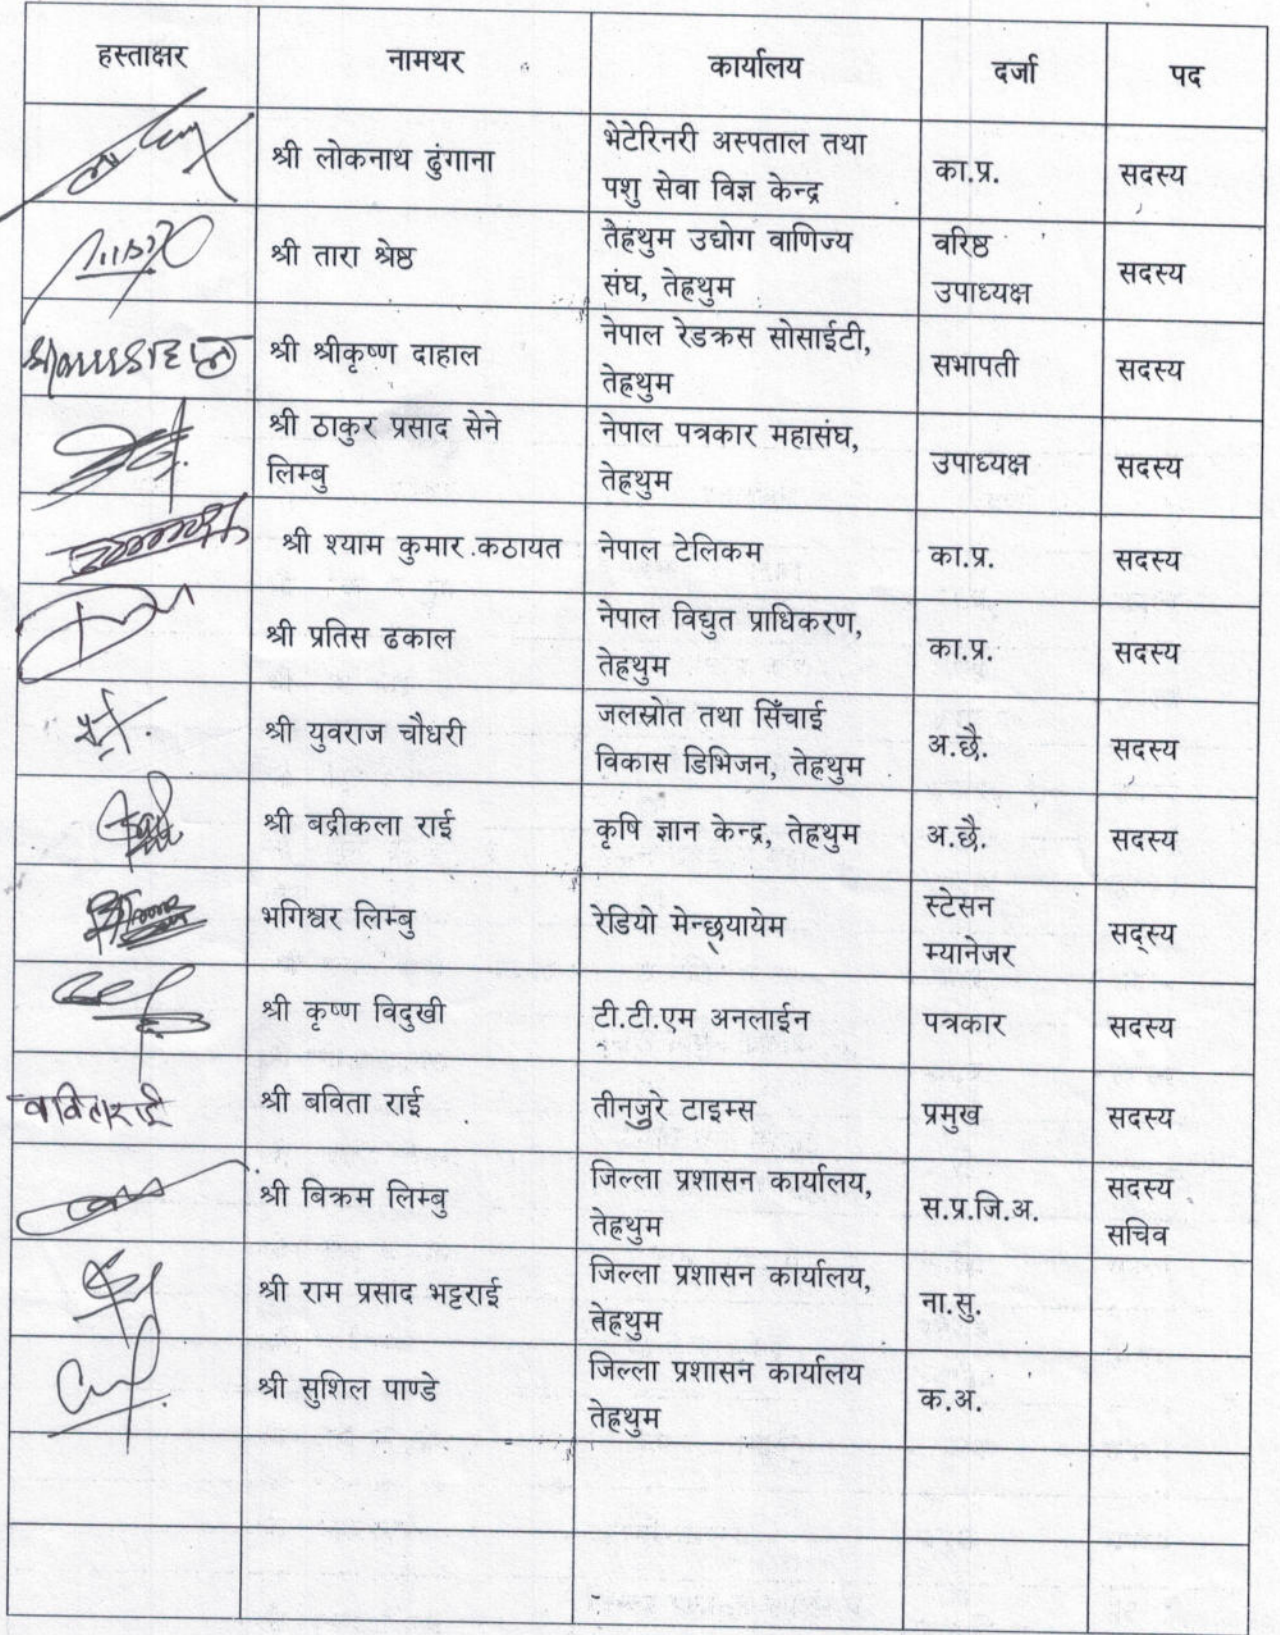 हस्ताक्षर नामथर कार्यालय दर्जा पद
श्री लोकनाथ ढुंगाना भेटेरिनरी अस्पताल तथा
पशु सेवा विज्ञ केन्द्र का.प्र. सदस्य
श्री तारा श्रेष्ठ तेह्रथुम उद्योग वाणिज्य
संघ, तेह्रथुम वरिष्ठ
उपाध्यक्ष सदस्य
श्री श्रीकृष्ण दाहाल नेपाल रेडक्रस सोसाईटी,
तेह्रथुम सभापती सदस्य
श्री ठाकुर प्रसाद सेने
लिम्बु नेपाल पत्रकार महासंघ,
तेह्रथुम उपाध्यक्ष सदस्य
श्री श्याम कुमार कठायत नेपाल टेलिकम का.प्र. सदस्य
श्री प्रतिस ढकाल नेपाल विद्युत प्राधिकरण,
तेह्रथुम का.प्र. सदस्य
श्री युवराज चौधरी जलस्रोत तथा सिँचाई
विकास डिभिजन, तेह्रथुम अ.छै. सदस्य
श्री बद्रीकला राई कृषि ज्ञान केन्द्र, तेह्रथुम अ.छै. सदस्य
भगिश्वर लिम्बु रेडियो मेन्छ्यायेम स्टेसन
म्यानेजर सद्स्य
श्री कृष्ण विदुखी टी.टी.एम अनलाईन पत्रकार सदस्य
वविता राई श्री बविता राई तीनजुरे टाइम्स प्रमुख सदस्य
श्री बिक्रम लिम्बु जिल्ला प्रशासन कार्यालय,
तेह्रथुम स.प्र.जि.अ. सदस्य
सचिव
श्री राम प्रसाद भट्टराई जिल्ला प्रशासन कार्यालय,
तेह्रथुम ना.सु.
श्री सुशिल पाण्डे जिल्ला प्रशासन कार्यालय
तेह्रथुम क.अ.